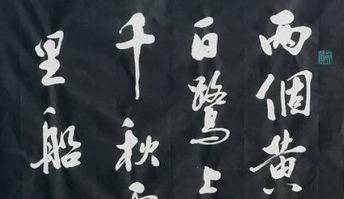 兩個黃
白鷺上
千秋
里船